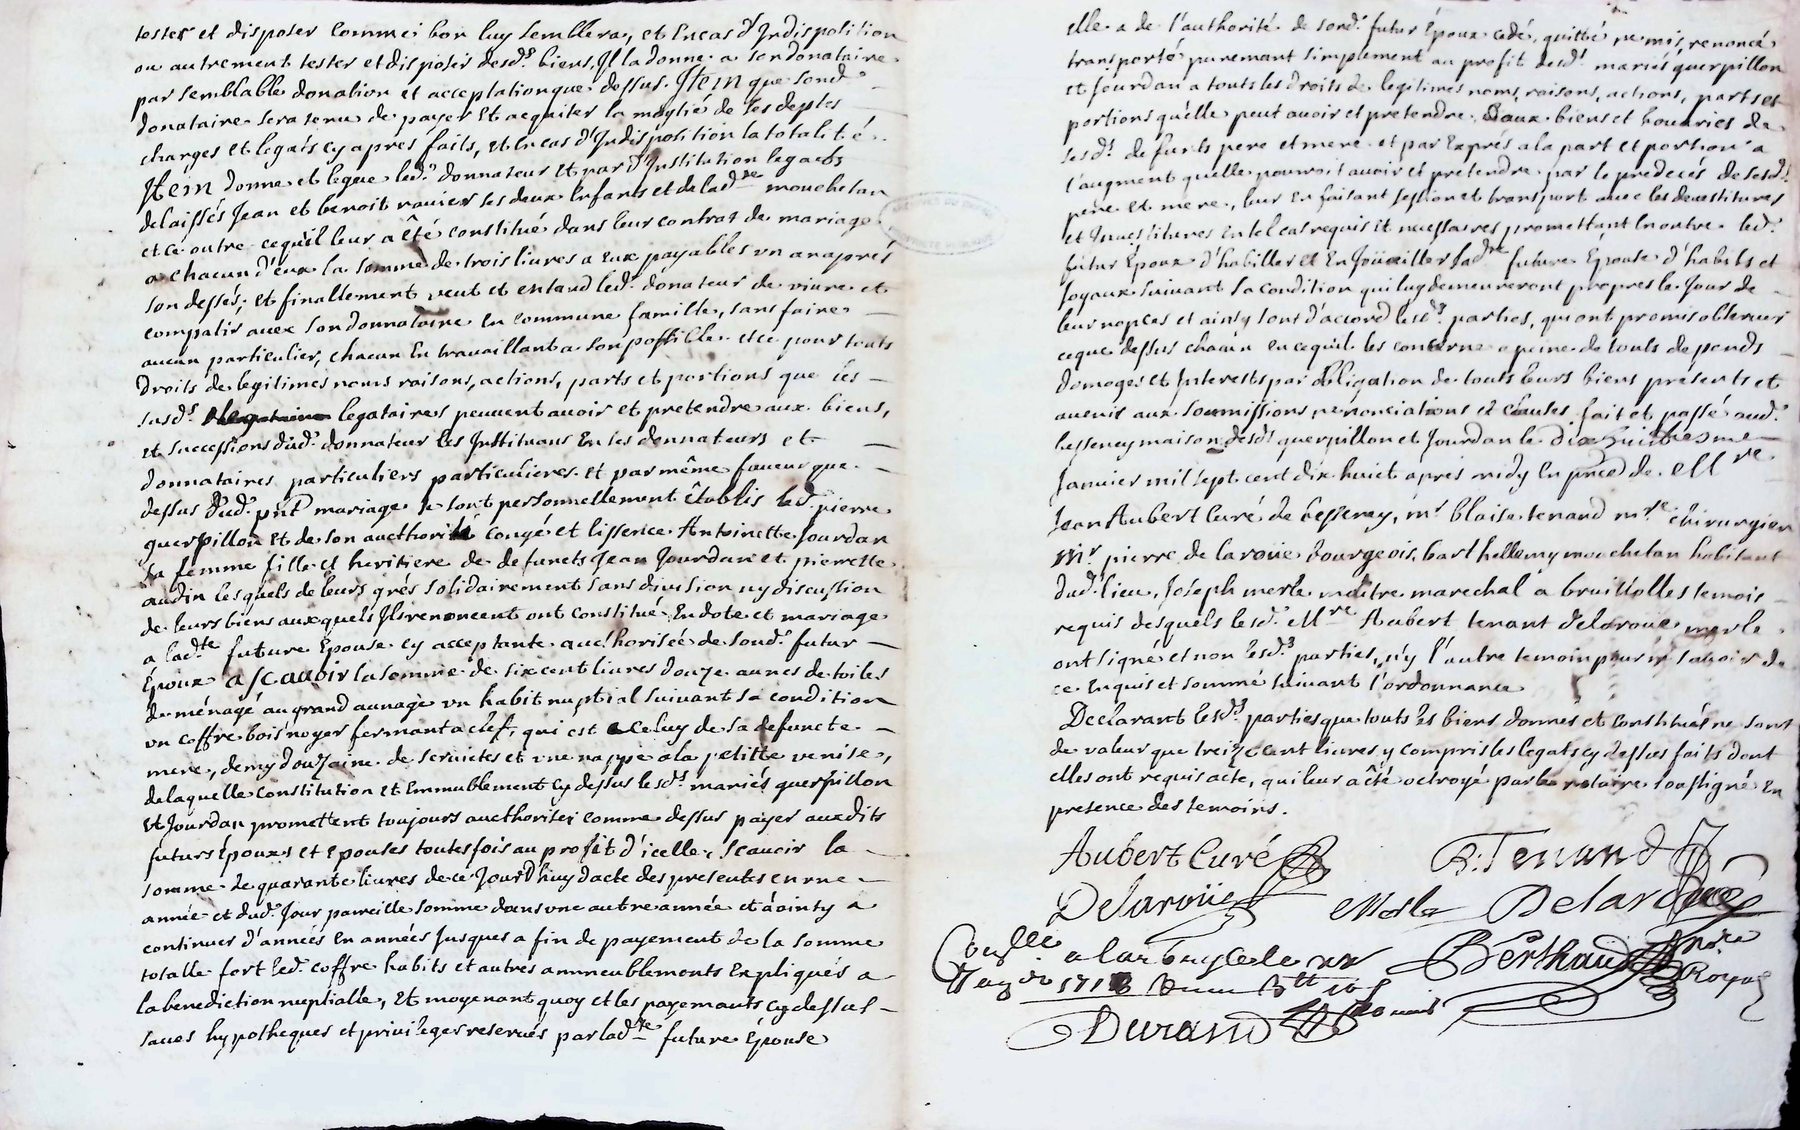 tester et disposer comme bon luy semblera, et en cas d'Indisposition
ou autrement tester et disposer desd.s biens, Il la donne a son donataire
par semblable donation et acceptation que dessus. Item que sond.
donataire sera tenu de payer et acquiter la moytié de ses deptes
charges et legats cy apres faits, et en cas d'Indisposition la totalité.
Item donne et legue led.t donnateur et par d'Institution legards
delaissés Jean et benoit ravier ses deux enfants et de lad.te mouchetan
et ce outre ce qu'il leur a êté constitué dans leur contrat de mariage
a chacun d'eux la somme de trois livres a eux payables un an aprés
son dessés; et finallement veut et entand led. donateur de vivre et
compatir avec son donnataire en commune famille, sans faire
aucun particulier, chacun en travaillant a son possible et ce pour touts
droits de legitimes noms raisons, actions, parts et portions que les
susd.s legataires peuvent avoir et pretendre aux biens,
et successions dud. donnateur les Instituans en les donnateurs et
donnataires particuliers particulieres. et par même faveur que
dessus dud. pnt mariage se sont personnellement êtablis led. pierre
querpillon et de son aucthorité congé et lissence Antoinette Jourdan
sa femme fille et heritiere de defuncts Jean Jourdan et pierrette
audin lesquels de leurs grés solidairement sans division ny discustion
de leurs biens auxquels Ils renoncent ont constitué en dote et mariage
a lad.te future Epouse cy acceptante aucthorisée de soud.t futur
Epoux asçavoir la somme de six cent livres douze aunes de toiles
de ménage au grand aunage un habit nuptial suivant sa condition
un coffre bois noyer fermant a clef, qui est celuy de sa defuncte
mere, demy douzaine de serviettes et une nappe a la petitte venise,
de laquelle constitution et Emmublement cy dessus lesd.s mariés querpillon
et Jourdan promettent toujours aucthorisée comme dessus payer auxdits
futurs époux et epouses toutes fois au profit d'icelle, scavoir la
somme de quarante livres de ce Jourd'huy d'acte des presentes en une
année et dud. Jour pareille somme dans une autre année et a ainsy a
continuer d'années en années Jusques a fin de payement de la somme
totalle fort led. coffre habits et autres ammeublements expliqués a
la benediction nuptialle, et moyenant quoy et les payemants cy dessus
saues hypotheques et privileges reservés par lad.te future épouse
elle a de l'authorité de sond. futur époux cedé, quitté remis, renoncé
transporté puremant simplement au profit desd.s mariés querpillon
et Jourdan a touts les droits de legitimes noms, raisons, actions, parts et
portions qu'elle peut avoir et pretendre aux biens et houaries de
sesd.s defunts pere et mere et par exprés a la part et portion a
l'augment quelle pouvoit avoir et pretendre par le predecés de sesd.s
pere et mere, leur en faisant session et transport avec les devestitures
et Investitures en tel cas requis et necessaires promettant en outre led.
futur époux d'habiller et enJoüailler lad.te future epouse d'habits et
Joyaux suivant sa condition qui luy demeureront propres le Jour de
leur nopces et ainsy sont d'accord lesd.s parties, qui ont promis observer
ce que dessus chacun en ce qu'il les concerne a peine de touts depends
domages et Interests par obligation de touts leurs biens presents et
avenir aux soumissions renonciations et clauses, fait et passé aud.
bessenay maison desd.s querpillon et Jourdan le dix huitiesme
Janvier mil sept cent dix huict apres midy en pnce de M.re
Jean Aubert Curé de bessenay, m.r blaise tenand m.re chirurgien
m.r pierre de la roüe bourgeois, barthellemy mouchetan habitant
dud. lieu, Joseph merle maitre marechal a brullolles temois
requis desquels lesd. M.re Aubert tenant delaroüe merle
ont signé et non lesd.s parties, n'y l'autre temoin pour ne savoir de
ce enquis et sommé suivant l'ordonnance
Declarant lesd.s parties que touts les biens donnés et constitués ne sont
de valeur que treize cent livres y compris les legats cy dessus faits dont
elles ont requis acte, qui leur a êté octroyé par le notaire soussigné en
presence des temoins.
Aubert Curé B. Tenand
Delaroüe Merle Delaroüe
Conllé a larbresle le
1718 Berthaud Nore
Royal
Durand